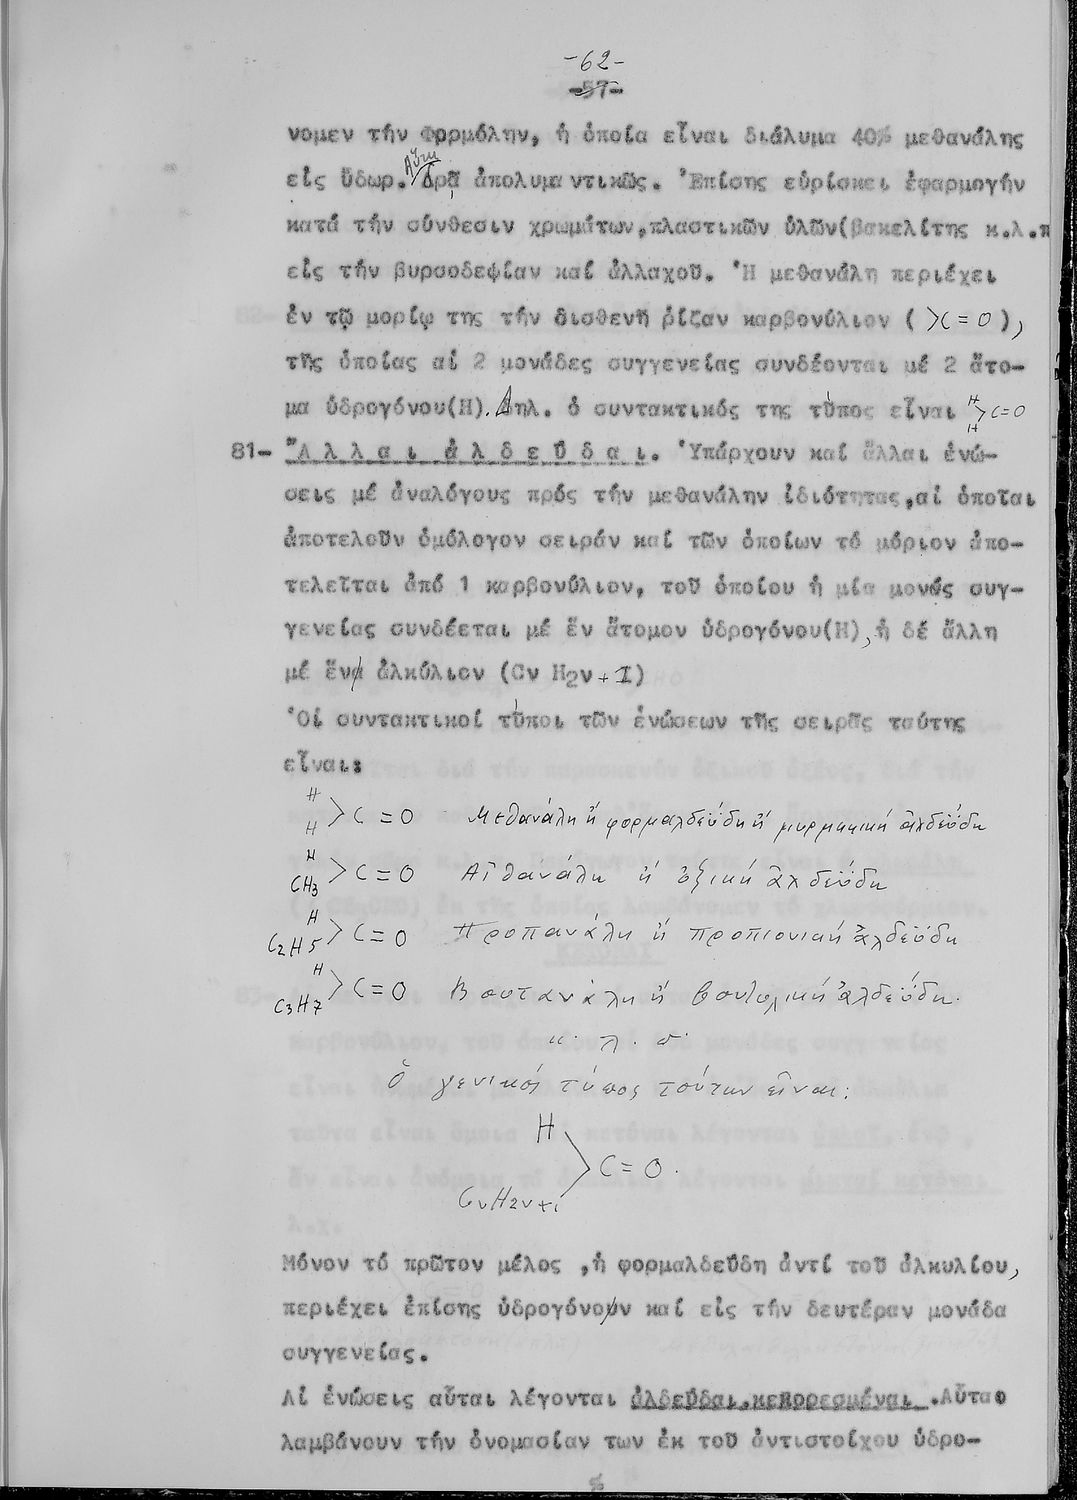 -62-
-57-
νομεν τήν Φορμόλην, ἡ ὁποία εἶναι διάλυμα 40% μεθανάλης
Αὕτη
εἰς ὕδωρ. δρᾷ ἀπολυμαντικῶς. Ἐπίσης εὑρίσκει ἐφαρμογήν
κατά τήν σύνθεσιν χρωμάτων,πλαστικῶν ὑλῶν(βακελίτης κ.λ.π
εἰς τήν βυρσοδεψίαν καί ἀλλαχοῦ. Ἡ μεθανάλη περιέχει
ἐν τῷ μορίῳ της τήν δισθενῆ ρίζαν καρβονύλιον ( >C = O ),
τῆς ὁποίας αἱ 2 μονάδες συγγενείας συνδέονται μέ 2 ἄτο-
μα ὑδρογόνου(Η). Δηλ. ὁ συντακτικός της τύπος εἶναι H H >C=O
81- Ἄλλαι ἀλδεΰδαι. Ὑπάρχουν καί ἄλλαι ἑνώ-
σεις μέ ἀναλόγους πρός τήν μεθανάλην ἰδιότητας,αἱ ὁποῖαι
ἀποτελοῦν ὁμόλογον σειράν καί τῶν ὁποίων τό μόριον ἀπο-
τελεῖται ἀπό 1 καρβονύλιον, τοῦ ὁποίου ἡ μία μονάς συγ-
γενείας συνδέεται μέ ἕν ἄτομον ὑδρογόνου(Η), ἡ δέ ἄλλη
μέ ἕν ἀλκύλιον (Cν H2ν + I)
Οἱ συντακτικοί τύποι τῶν ἑνώσεων τῆς σειρᾶς ταύτης
εἶναι:
H H >C = O Μεθανάλη ἤ φορμαλδεΰδη ἤ μυρμηκική ἀλδεΰδη
H CH3 >C = O Αἰθανάλη ἤ ὀξική ἀλδεΰδη
H C2H5 >C = O Προπανάλη ἤ προπιονική ἀλδεΰδη
H C3H7 >C = O Βουτανάλη ἤ βουτυρική ἀλδεΰδη.
κ. λ. π.
Ὁ γενικός τύπος τούτων εἶναι:
H
>C = O.
CνH2ν+1
Μόνον τό πρῶτον μέλος ,ἡ φορμαλδεΰδη ἀντί τοῦ ἀλκυλίου,
περιέχει ἐπίσης ὑδρογόνον καί εἰς τήν δευτέραν μονάδα
συγγενείας.
Αἱ ἑνώσεις αὗται λέγονται ἀλδεΰδαι κεκορεσμέναι .Αὗται
λαμβάνουν τήν ὀνομασίαν των ἐκ τοῦ ἀντιστοίχου ὑδρο-